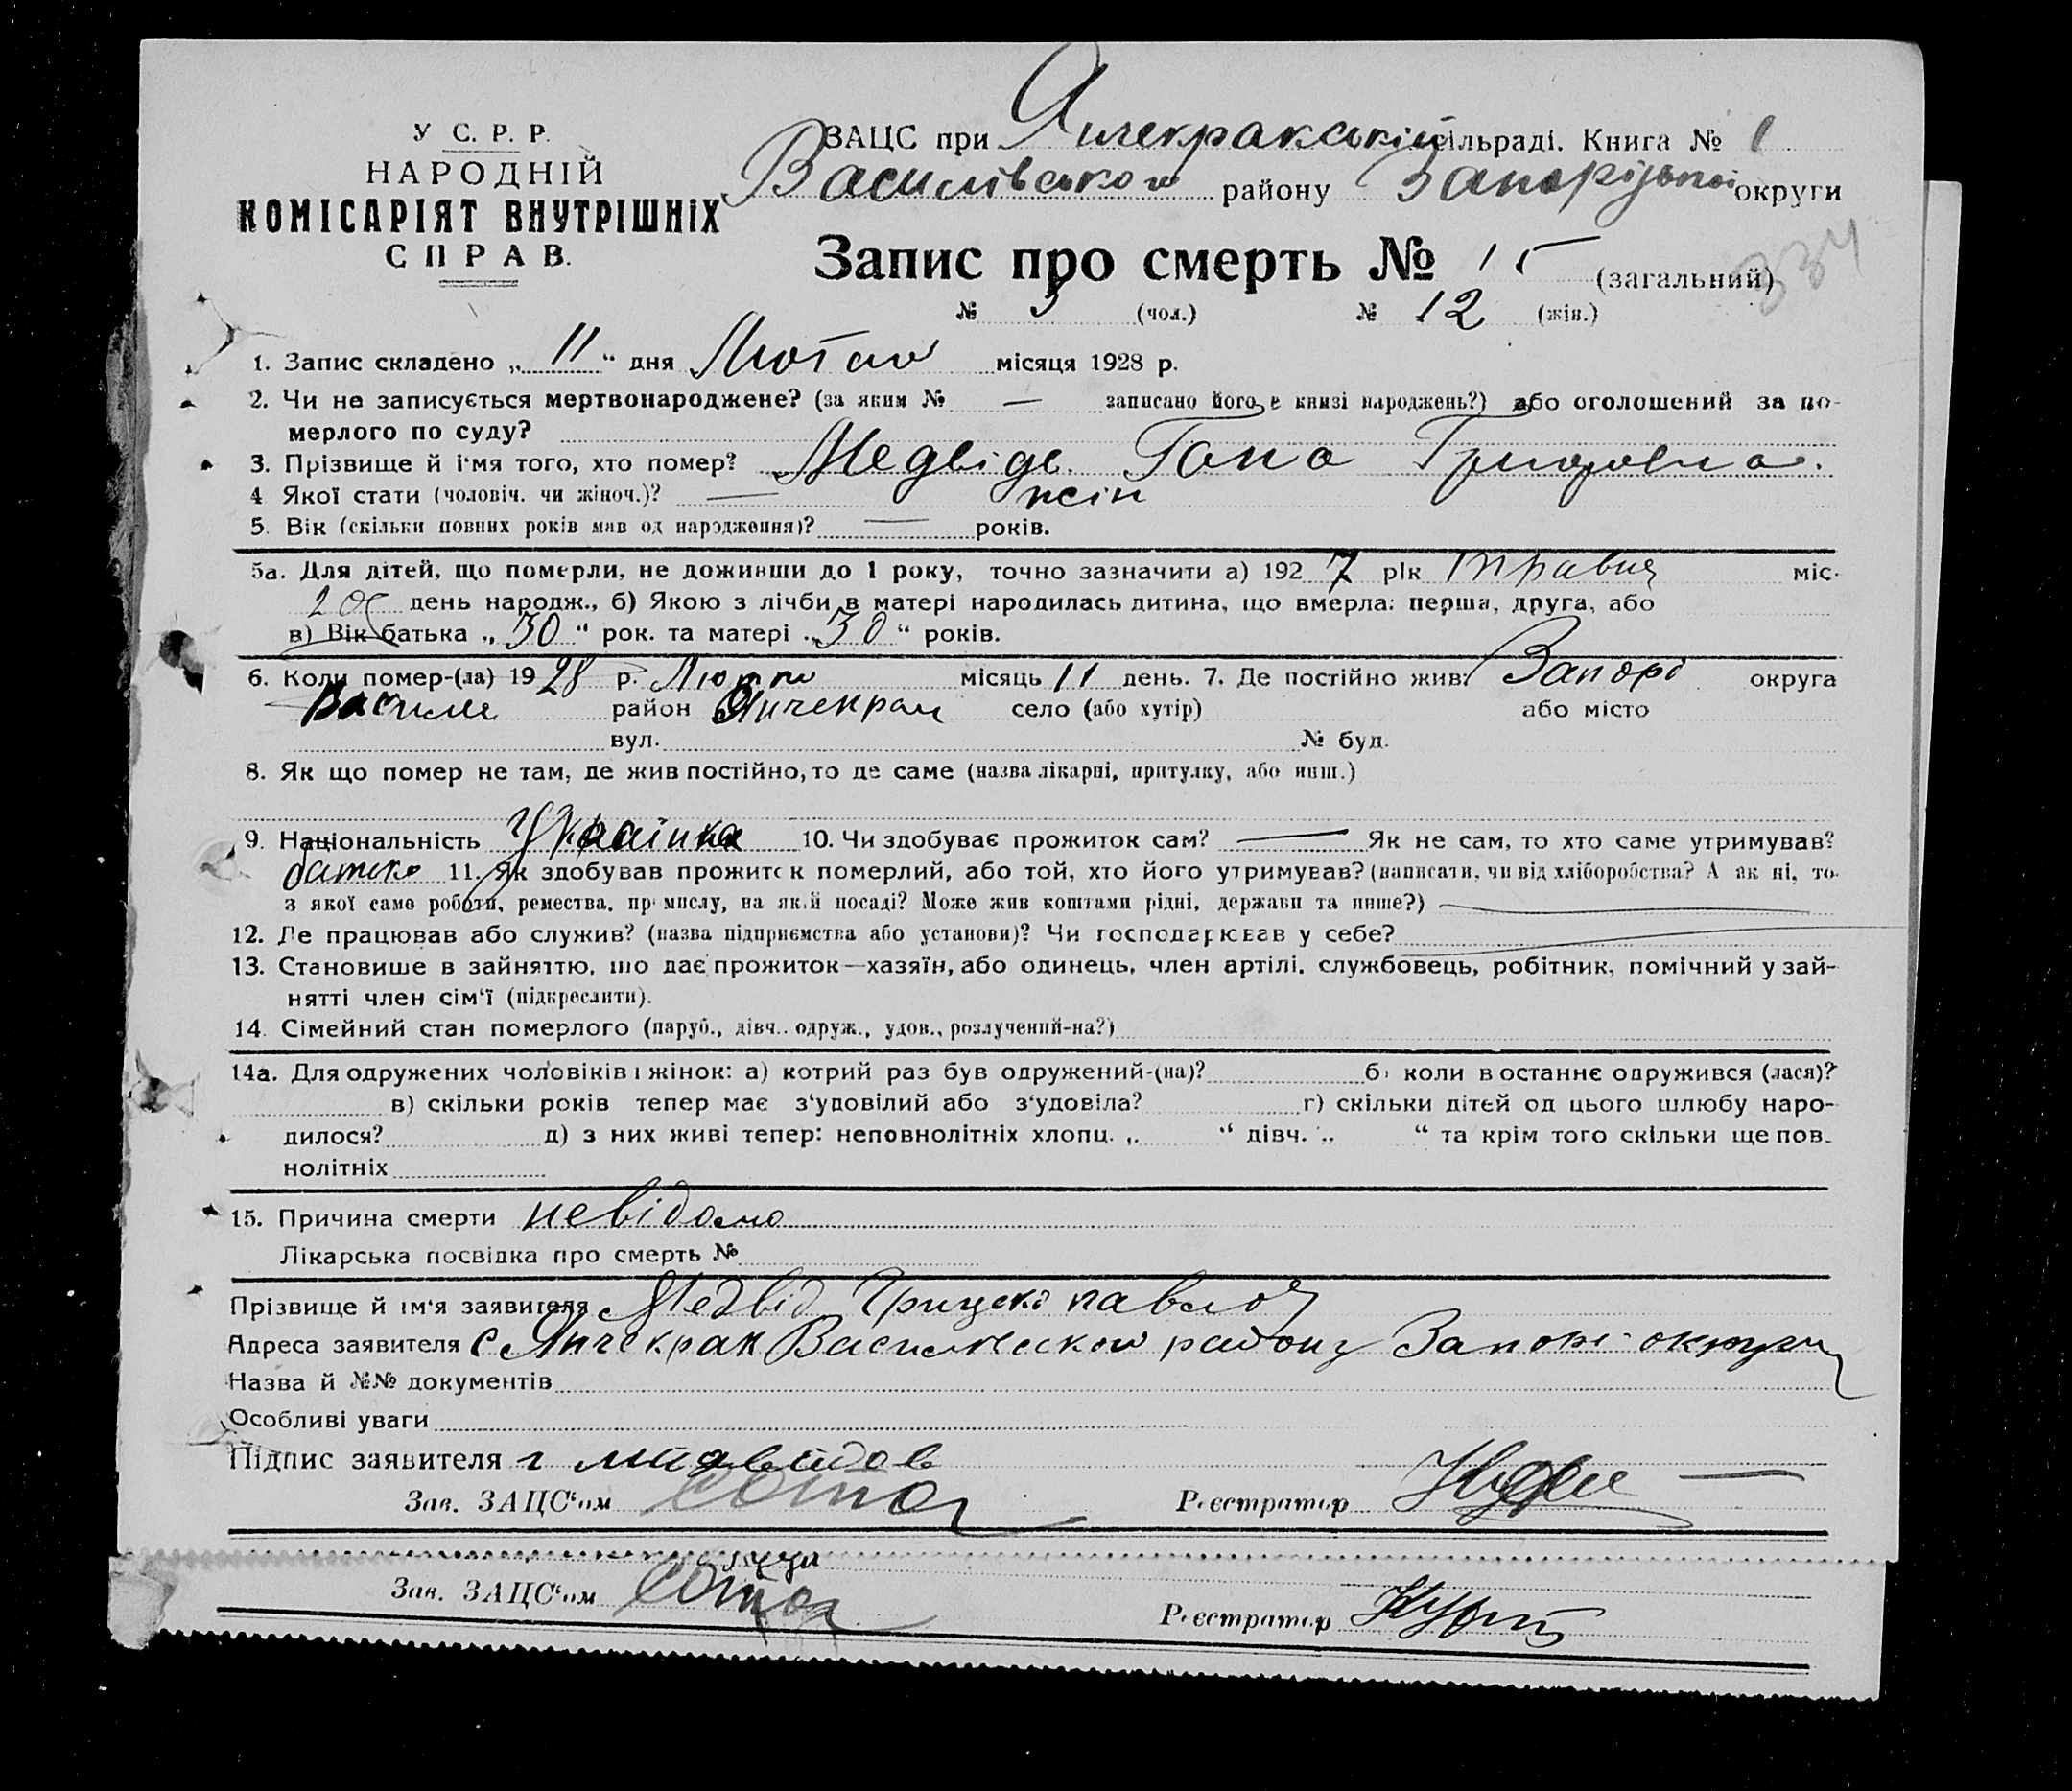 У С. Р. Р.
НАРОДНІЙ
КОМІСАРІЯТ ВНУТРІШНІХ
СПРАВ.
ЗАЦС при Янчекракській сільраді. Книга № 1
Василівського району Запоріжської округи
Запис про смерть № 15 (загальний)
334
№ 3 (чол.) № 12 (жін.)
1. Запис складено „ 11 “ дня Лютого місяця 1928 р.
2. Чи не записується мертвонароджене? (за яким № — записано його в книзі народжень?) або оголошений за по-
мерлого по суду?
3. Прізвище й ім'я того, хто помер? Медвідь Гана Григоровна.
4. Якої стати (чоловіч. чи жіноч.)? — жін
5. Вік (скільки повних років мав од народження)? — років.
5а. Для дітей, що померли, не доживши до 1 року, точно зазначити а) 1927 рік травня міс.
день народж., б) Якою з лічби в матері народилась дитина, що вмерла: перша, друга, або
в) Вік батька „ 30 “ рок. та матері „ 30 “ років.
6. Коли помер-(ла) 1928 р. Лютого місяць 11 день. 7. Де постійно жив? Запорі округа
Василів район Янчекрак село (або хутір) або місто
вул. № буд.
8. Як що помер не там, де жив постійно, то де саме (назва лікарні, притулку, або инш.)
9. Національність Українка 10. Чи здобуває прожиток сам? — Як не сам, то хто саме утримував?
батько 11. Як здобував прожиток померлий, або той, хто його утримував? (написати, чи від хліборобства? А як ні, то
з якої само роботи, ремества, промислу, на якій посаді? Може жив коштами рідні, держави та инше?) —
12. Де працював або служив? (назва підприємства або установи)? Чи господарював у себе? —
13. Становише в зайняттю, що дає прожиток—хазяїн, або одинець, член артілі, службовець, робітник, помічний у зай-
нятті член сім'ї (підкреслити).
14. Сімейний стан померлого (паруб., дівч.. одруж., удов., розлучений-на?)
14а. Для одружених чоловіків і жінок: а) котрий раз був одружений-(на)? б) коли в останнє одружився (лася)?
в) скільки років тепер має з'удовілий або з'удовіла? г) скільки дітей од цього шлюбу наро-
дилося? д) з них живі тепер: неповнолітніх хлопц. „ “ дівч. „ “ та крім того скільки ще пов-
нолітніх
15. Причина смерти невідомо
Лікарська посвідка про смерть №
Прізвище й ім'я заявителя Медвід Грицько павлов
Адреса заявителя с Янчекрак Василевсков району Запорі округи
Назва й №№ документів
Особливі уваги
Підпис заявителя г
Зав. ЗАЦС'ом Реєстратор
Зав. ЗАЦС'ом Реєстратор